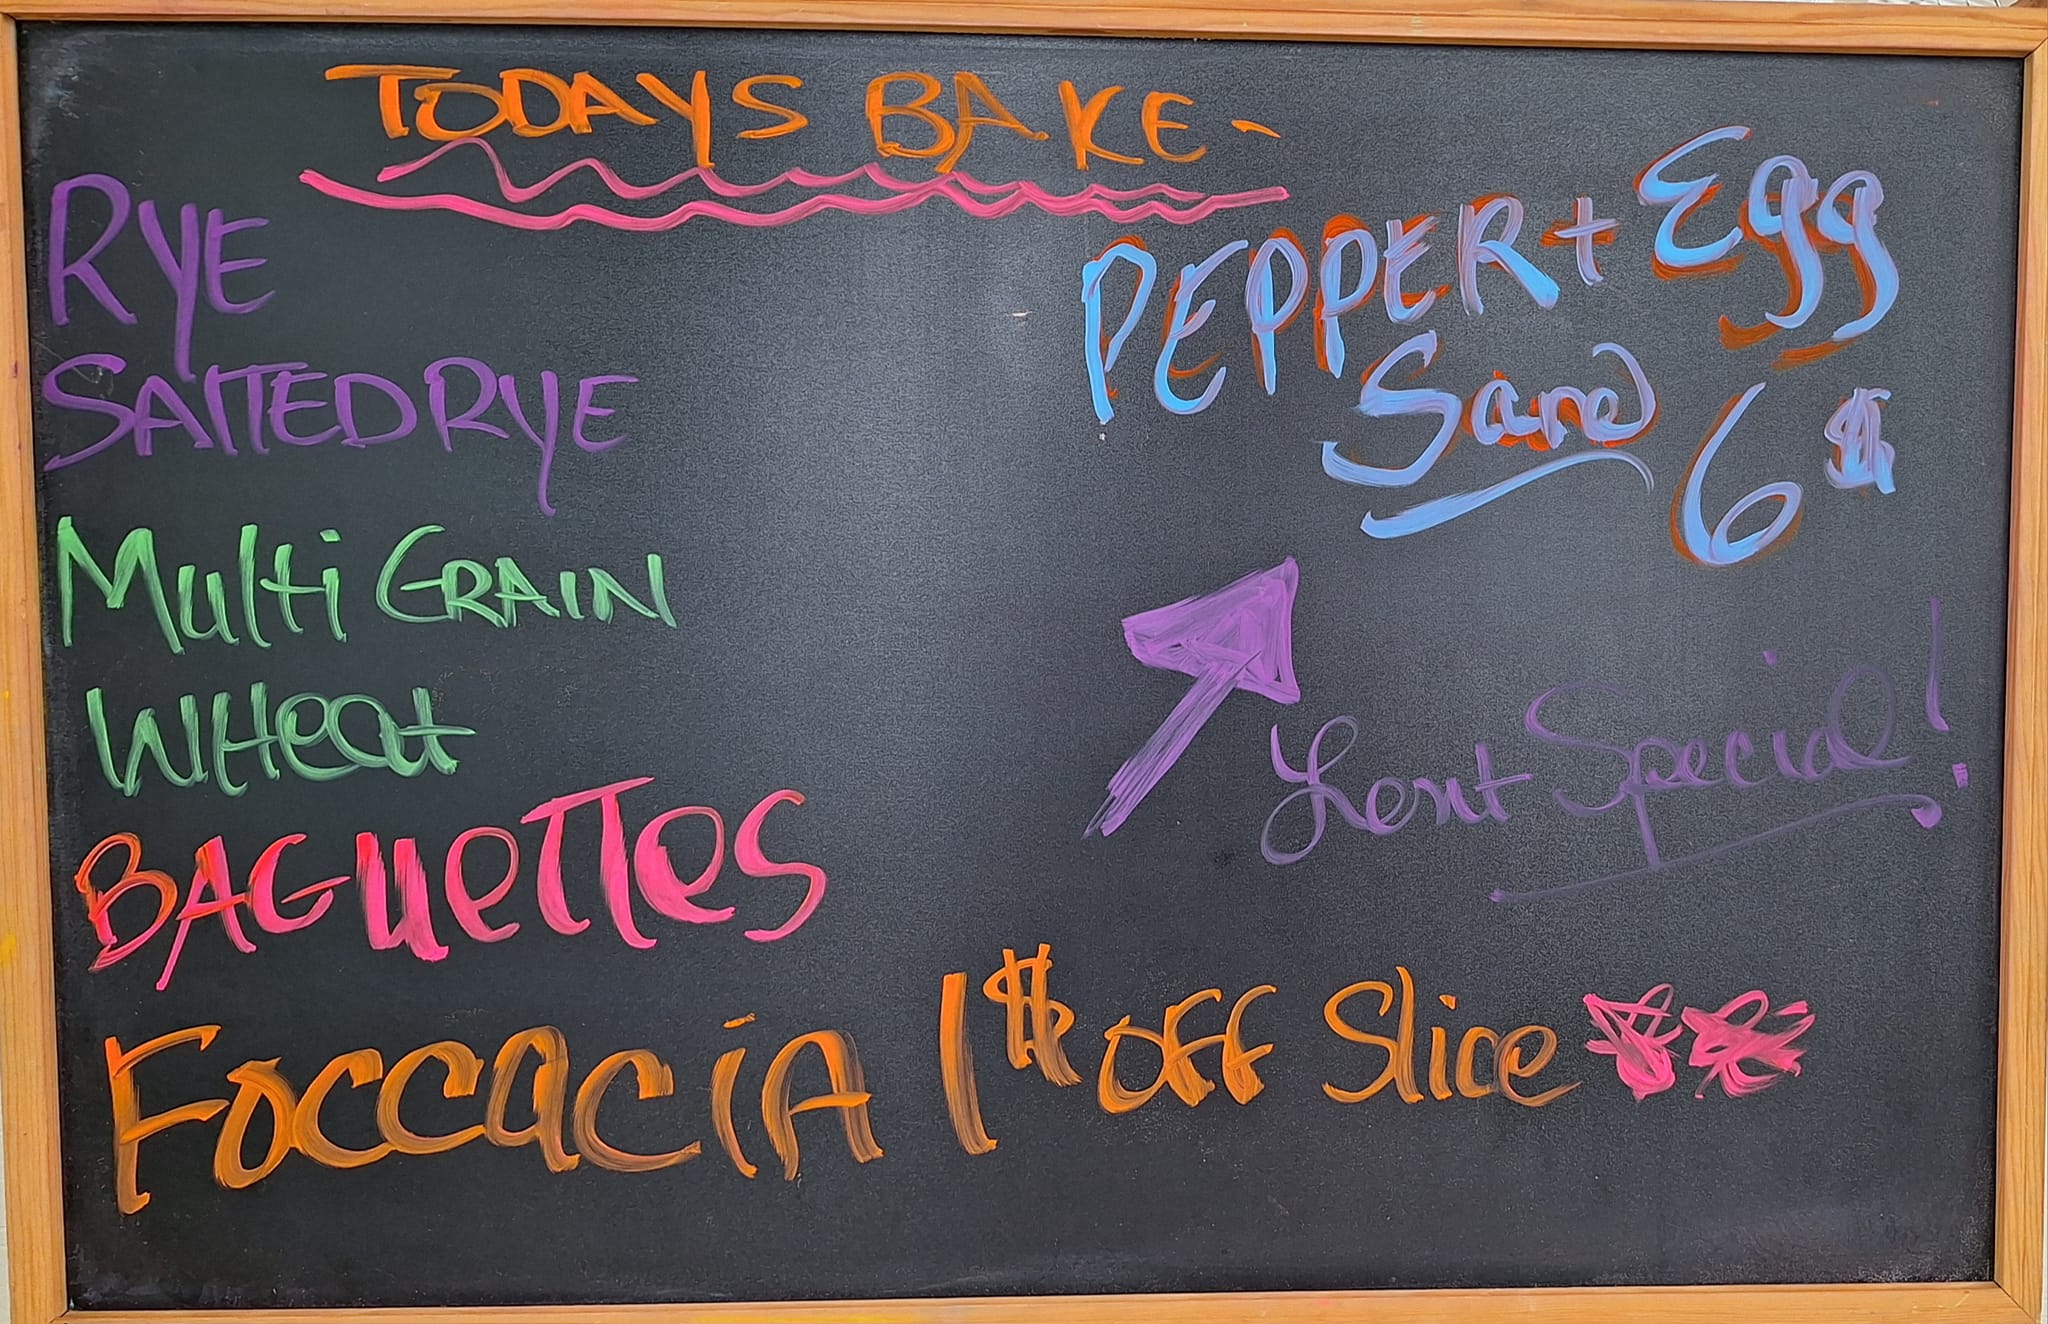 TODAYS BAKE -
RYE
SALTED RYE
Multi GRAIN
WHeat
BAGueTTes
FoccaciA 1$ OFF Slice
PEPPER + Egg
Sand 6$
Lent Special!